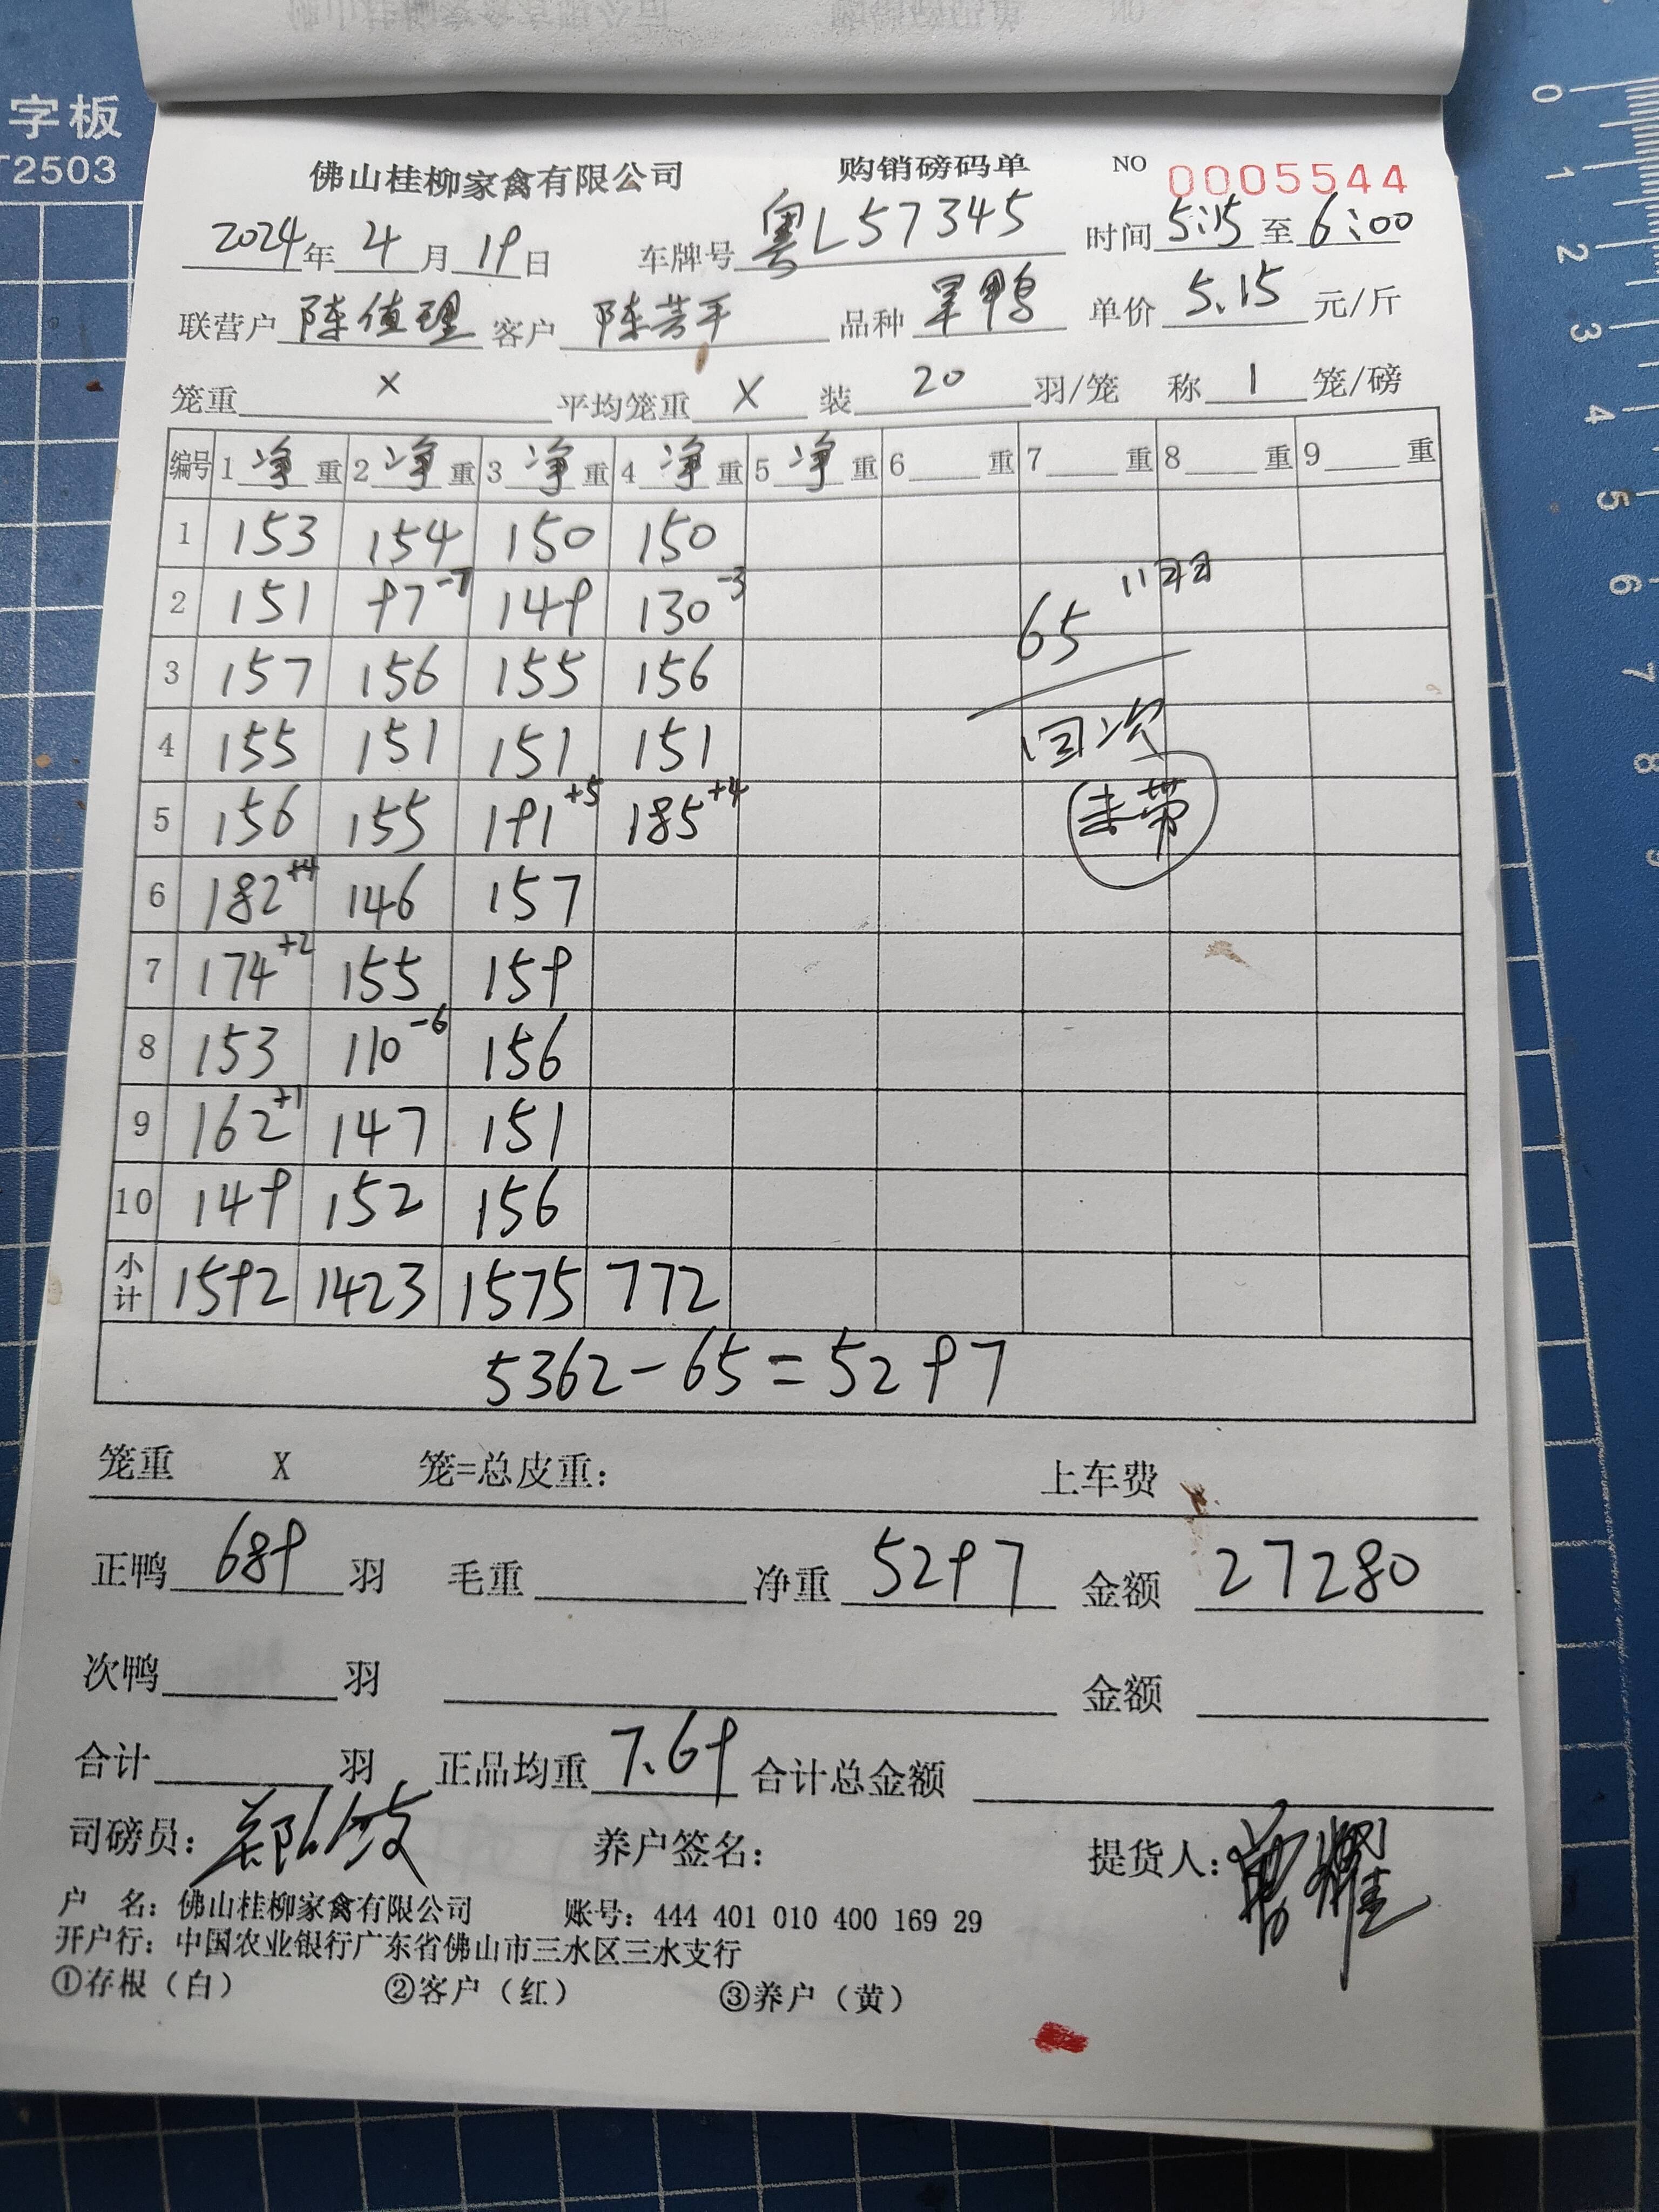 字板
T2503
佛山桂柳家禽有限公司 购销磅码单 NO 0005544
2024年 4月 19日 车牌号 粤L57345 时间 5:15 至 6:00
联营户 陈值理 客户 陈芳平 品种 旱鸭 单价 5.15 元/斤
笼重 X 平均笼重 X 装 20 羽/笼 称 1 笼/磅
编号 1 净 重 2 净 重 3 净 重 4 净 重 5 净 重 6 重 7 重 8 重 9 重
1 153 154 150 150
2 151 97-7 149 130-3
3 157 156 155 156
4 155 151 151 151
5 156 155 191+5 185+4
6 182+4 146 157
7 174+2 155 159
8 153 110-6 156
9 162+1 147 151
10 149 152 156
小计 1592 1423 1575 772
65 11羽
回次
未带
5362-65=5297
笼重 X 笼=总皮重： 上车费
正鸭 689 羽 毛重 净重 5297 金额 27280
次鸭 羽 金额
合计 羽 正品均重 7.69 合计总金额
司磅员： 养户签名： 提货人：
户 名：佛山桂柳家禽有限公司 账号：444 401 010 400 169 29
开户行：中国农业银行广东省佛山市三水区三水支行
①存根（白） ②客户（红） ③养户（黄）
0
1
2
3
4
5
6
7
8
9